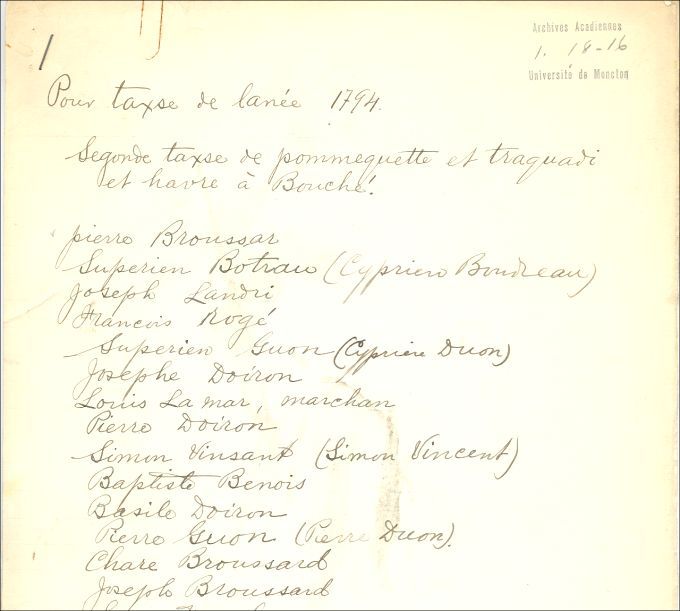 1
Archives Acadiennes
1. 18-16
Université de Moncton
Pour taxse de lanée 1794.
Segonde taxse de pommeguette et traquadi
et havre à Bouché.
pierre Broussar
Superien Botrau (Cyprien Boudreau)
Joseph Landri
Francois Rogé
Superien Guon (Cyprien Duon)
Josephe Doiron
Louis La mar, marchan
Pierre Doiron
Simon Vinsant (Simon Vincent)
Baptiste Benois
Basile Doiron
Pierre Guon (Pierre Duon).
Chare Broussard
Joseph Broussard